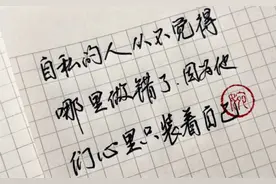 自私的人从不觉得
哪里做错了.因为他
们心里只装着自己